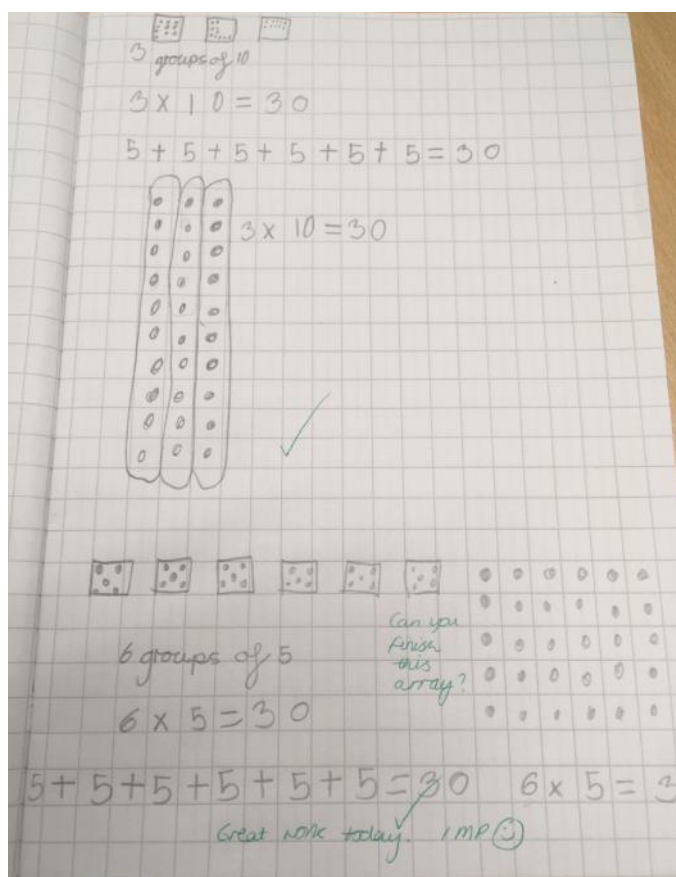 3 groups of 10
3 x 10 = 30
5 + 5 + 5 + 5 + 5 + 5 = 30
3 x 10 = 30
Can you
finish
this
array?
6 groups of 5
6 x 5 = 30
5 + 5 + 5 + 5 + 5 + 5 = 30 6 x 5 = 3
Great work today. 1MP